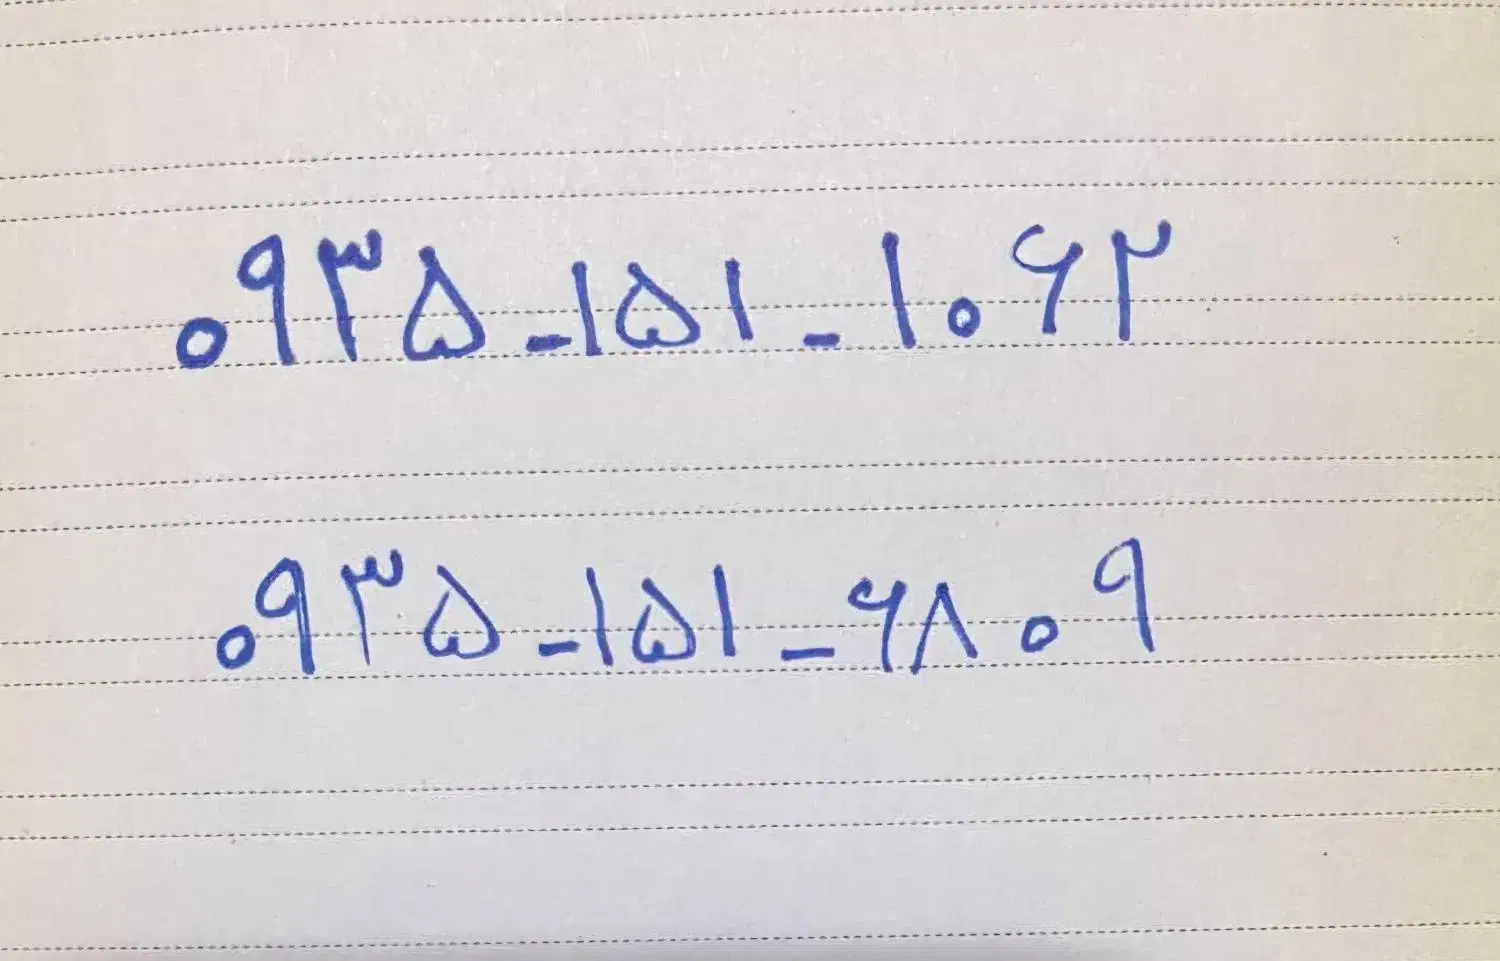 ۰۹۳۵-۱۵۱-۱۰۶۲
۰۹۳۵-۱۵۱-۶۸۰۹